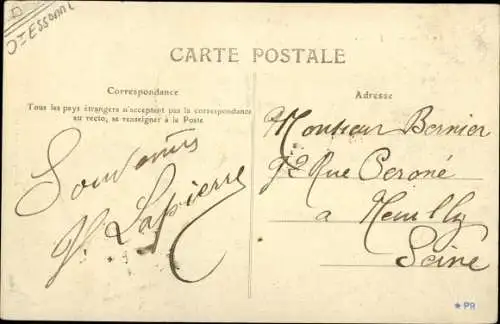 D
D=ESSONNE
CARTE POSTALE
Correspondance
Tous les pays étrangers n'acceptent pas la correspondance
au recto, se renseigner à la Poste
Souvenirs
Lapierre
Adresse
Monsieur Bernier
92 Rue Peroné
a Neuilly
Seine
*PR